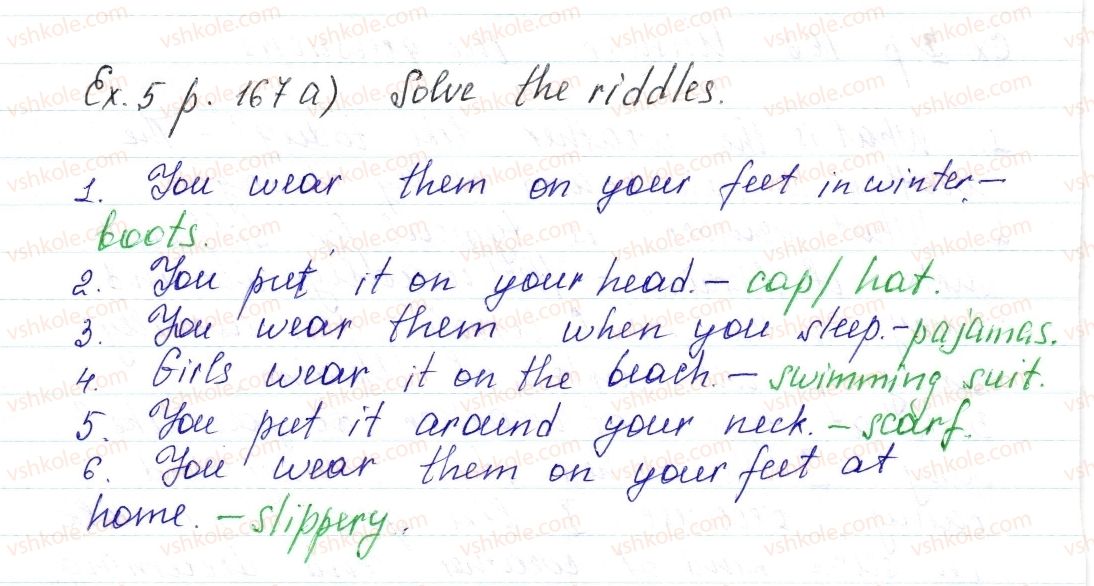 Ex. 5 p. 167 a) Solve the riddles.
1. You wear them on your feet in winter. –
boots.
2. You put it on your head. – cap/ hat.
3. You wear them when you sleep. – pajamas.
4. Girls wear it on the beach. – swimming suit.
5. You put it around your neck. – scarf.
6. You wear them on your feet at
home. – slippery.
vshkole.com